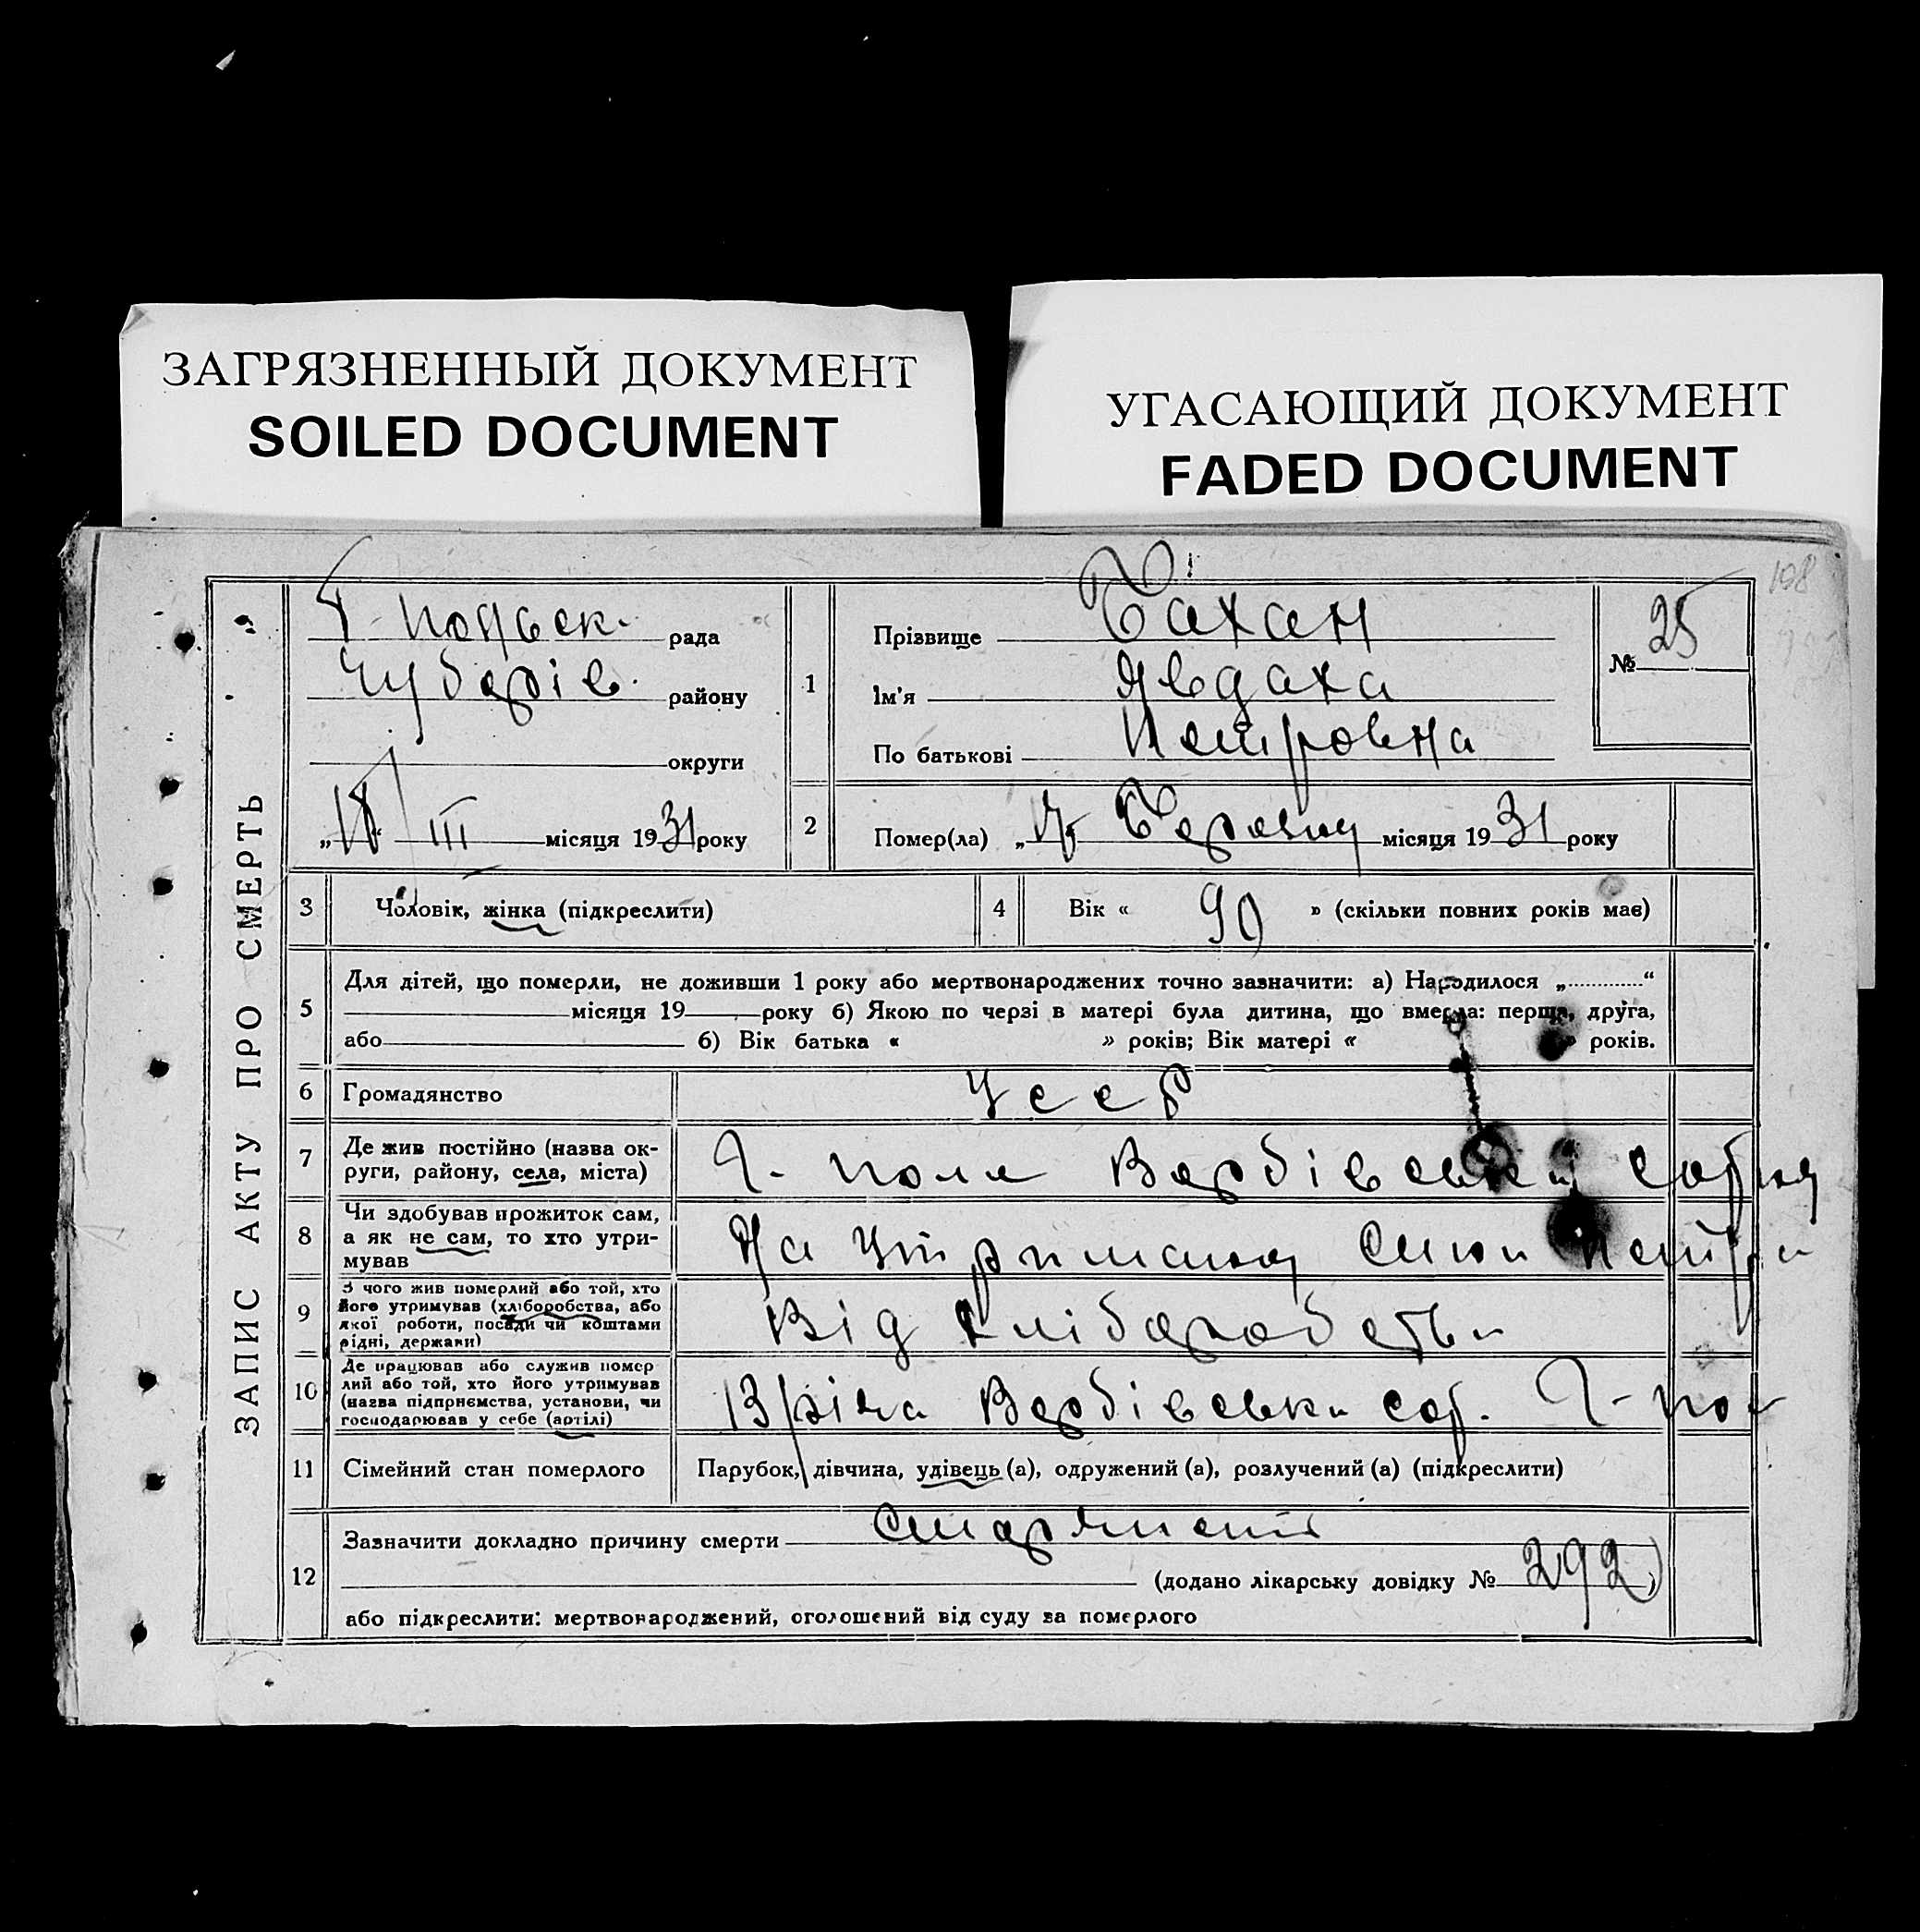 ЗАГРЯЗНЕННЫЙ ДОКУМЕНТ
SOILED DOCUMENT
УГАСАЮЩИЙ ДОКУМЕНТ
FADED DOCUMENT
108
ЗАПИС АКТУ ПРО СМЕРТЬ
Г-польск. рада
Чубарів. району
округи
„18“ III місяця 1931 року
1
Прізвище Бахан
Ім'я Явдаха
По батькові Петровна
№ 25
2
Помер(ла) „17 Березня місяця 1931 року
3 Чоловік, жінка (підкреслити)
4 Вік « 90 » (скільки повних років має)
5
Для дітей, що померли, не доживши 1 року або мертвонароджених точно зазначити: а) Народилося „............“
місяця 19 року б) Якою по черзі в матері була дитина, що вмерла: перша, друга,
або б) Вік батька « » років; Вік матері « » років.
6 Громадянство УССР
7
Де жив постійно (назва ок-
руги, району, села, міста)
Г-поля Вербівської
8
Чи здобував прожиток сам,
а як не сам, то хто утри-
мував
На утриманню Сина Петра
9
З чого жив померлий або той, хто
його утримував (хліборобства, або
якої роботи, посади чи коштами
рідні, держави)
Від хліборобства
10
Де працював або служив помер
лий або той, хто його утримував
(назва підприємства, установи, чи
господарював у себе (артілі)
Вербівська Г-пол
11 Сімейний стан померлого Парубок, дівчина, удівець (а), одружений (а), розлучений (а) (підкреслити)
12
Зазначити докладно причину смерти
(додано лікарську довідку № 292)
або підкреслити: мертвонароджений, оголошений від суду за померлого